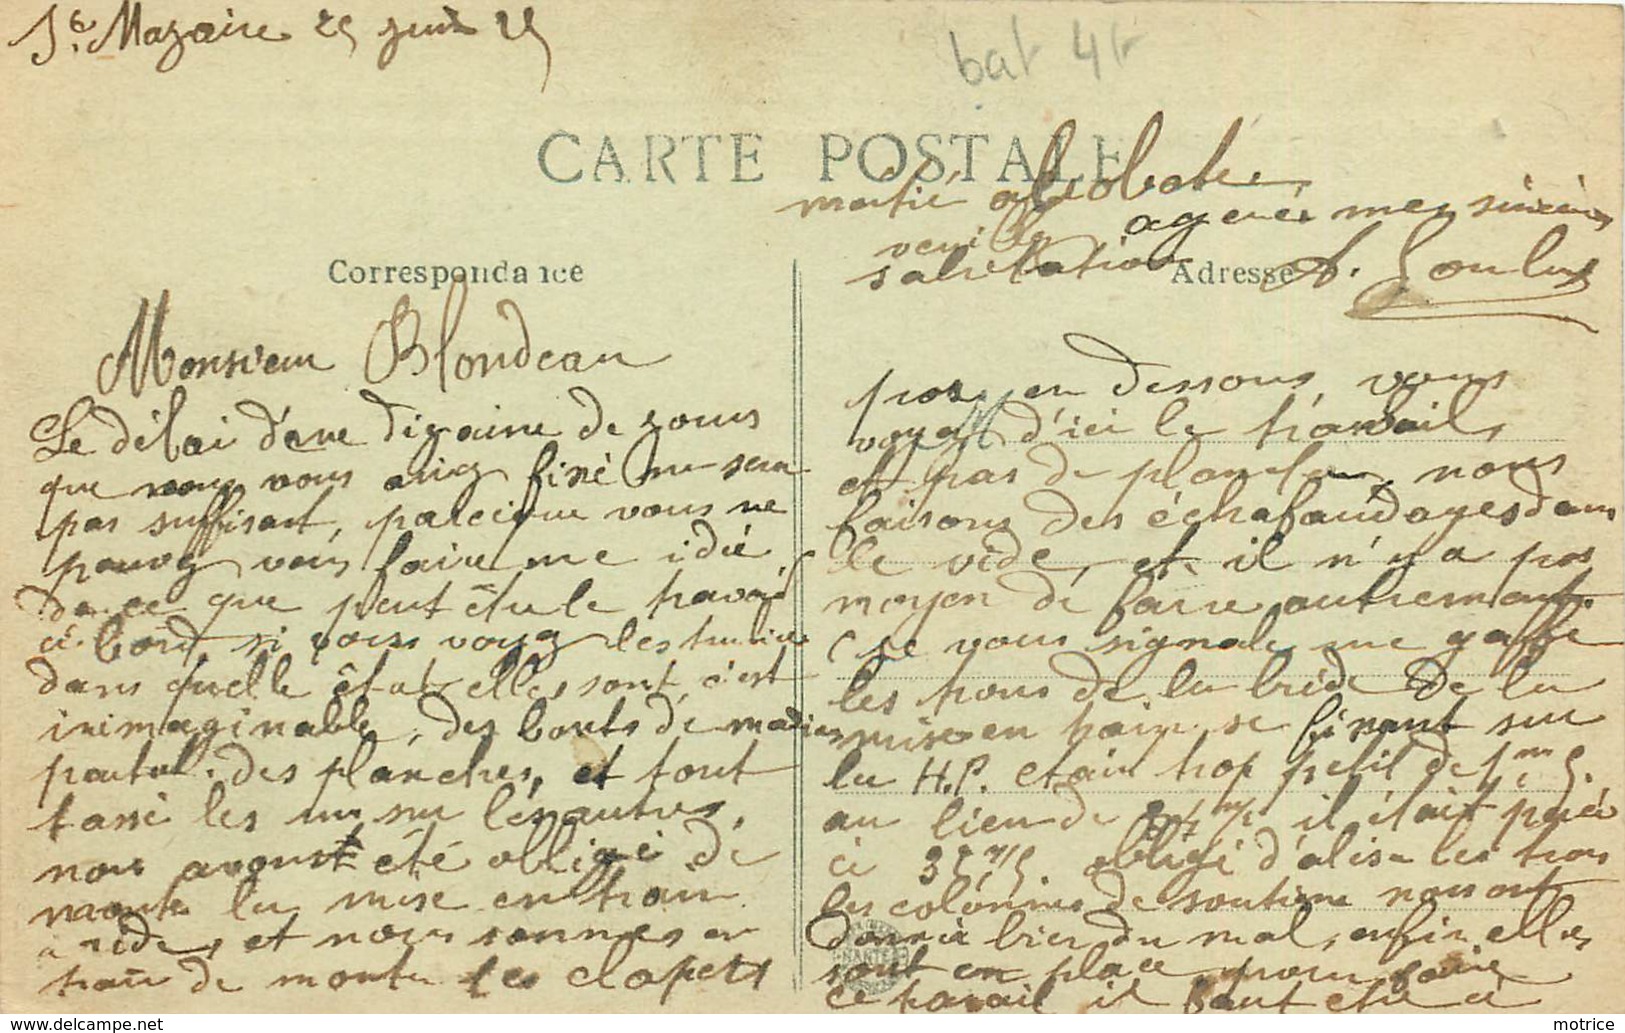 St Nazaire 25 juin 25
bat 4 tr
CARTE POSTALE
moitié
veuillez agréer mes sincères
salutations
Correspondance
Adresse
Monsieur Blondeau
Le délai d'une dizaine de jours
que vous aviez fixé ne sera
pas suffisant, parceque vous ne
pouvez vous faire une idée
de ce que peut être le travail
à bord, si vous voyez les turbines
dans quelle état elles sont, c'est
inimaginable, des bouts de madriers
partout. des planches, et tout
tassé les uns sur les autres,
nous avons été obligé de
monter la mise en train
à vide, et nous sommes en
train de monter les clapets
pas en dessous, vous
voyez d'ici le travail,
et pas de plancher, nous
faisons des échafaudages dans
le vide, et il n'y a pas
moyen de faire autrement.
Je vous signale une gaffe
les trous de la bride de la
mise en train se fixant sur
la H.P. était trop petit de
au lieu de il était percé
à obligé d'aléser les trous
les colonnes de soutiene nous ont
donné bien du mal, enfin elles
sont en place, pour faire
ce travail il faut être à
NANTES
motrice